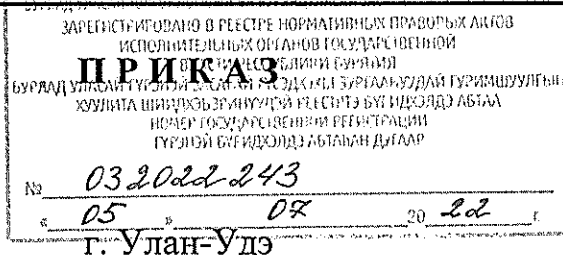 ЗАРЕГИСТРИРОВАНО В РЕЕСТРЕ НОРМАТИВНЫХ ПРАВОВЫХ АКТОВ
ИСПОЛНИТЕЛЬНЫХ ОРГАНОВ ГОСУДАРСТВЕННОЙ
ВЛАСТИ РЕСПУБЛИКИ БУРЯТИЯ
ПРИКАЗ
БУРЯАД УЛАСАЙ ГҮРЭНЭЙ ЗАСАГАЙ ГҮРИМШУУЛГЫН
ХУУЛИТА РЕЕСТРТЭ БҮРИДХЭЛДЭ АБТАА
НОМЕР ГОСУДАРСТВЕННОЙ РЕГИСТРАЦИИ
ГҮРЭНЭЙ БҮРИДХЭЛДЭ АБТАҺАН ДУГААР
№ 032022243
« 05 » 07 20 22 г.
г. Улан-Удэ